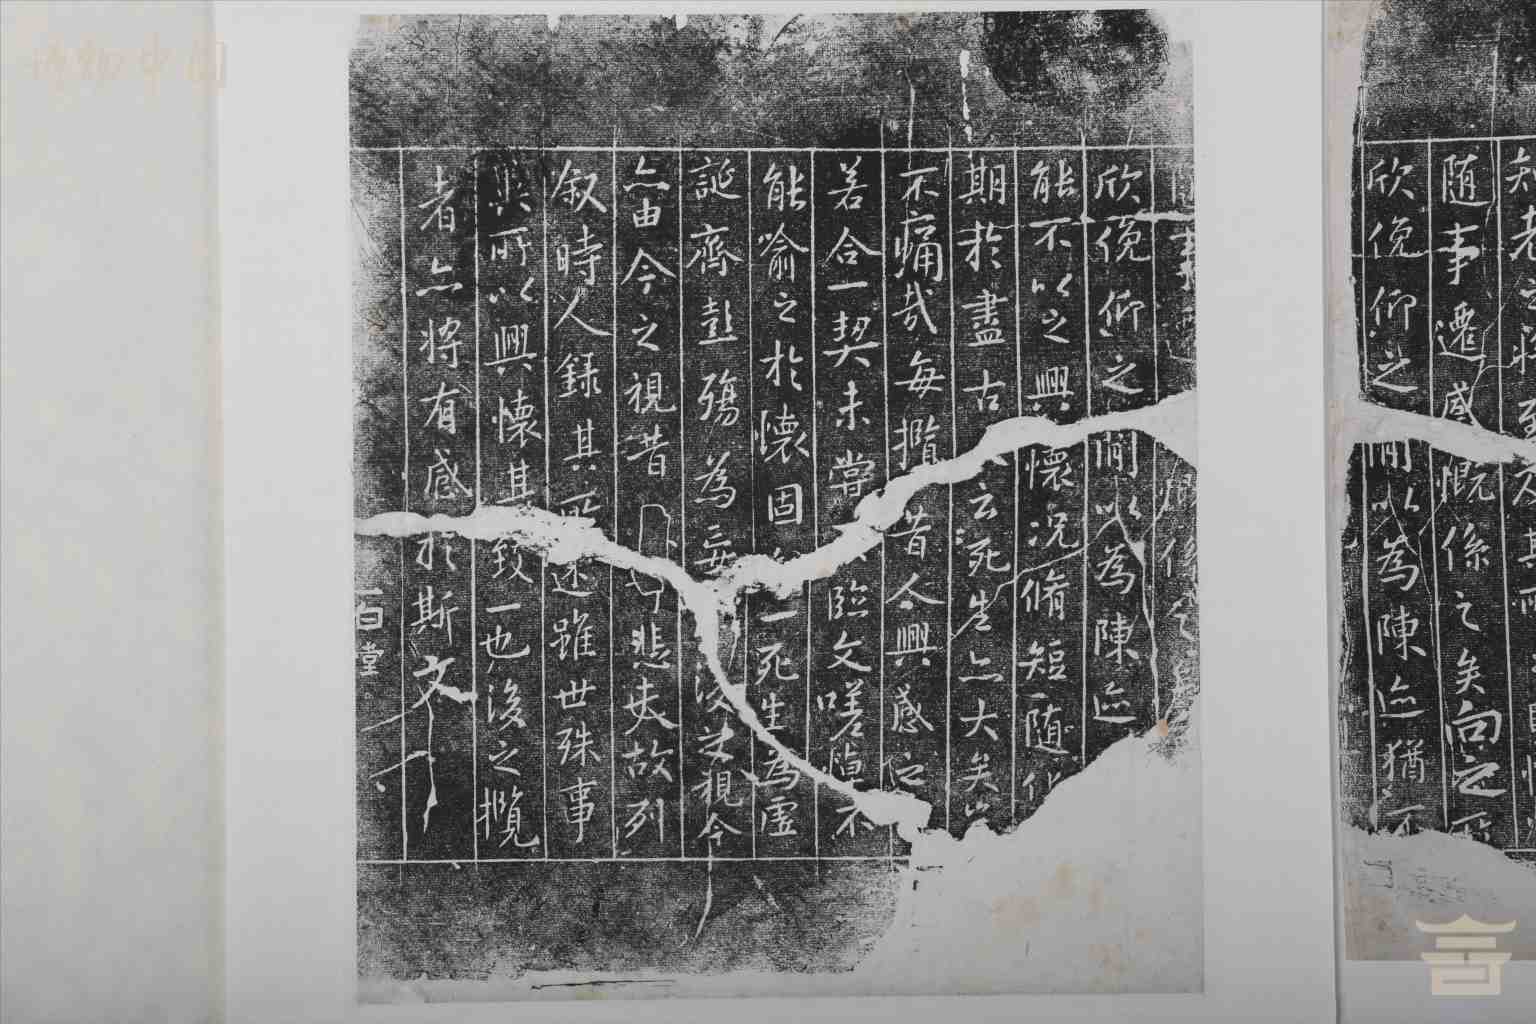 知老之將至及其所
随事遷感慨係之矣向之所
欣俛仰之閒以為陳迹猶不
随事遷慨係之
欣俛仰之閒以為陳迹
能不以之興懷况脩短随化
期於盡古云死生亦大矣豈
不痛哉每攬昔人興感
若合一契未嘗臨文嗟悼不
能喻之於懷固一死生為虛
誕齊彭殤為妄後之視今
亦由今之視昔悲夫故列
叙時人録其所述雖世殊事
異所以興懷其致一也後之攬
者亦將有感於斯文
博物中国